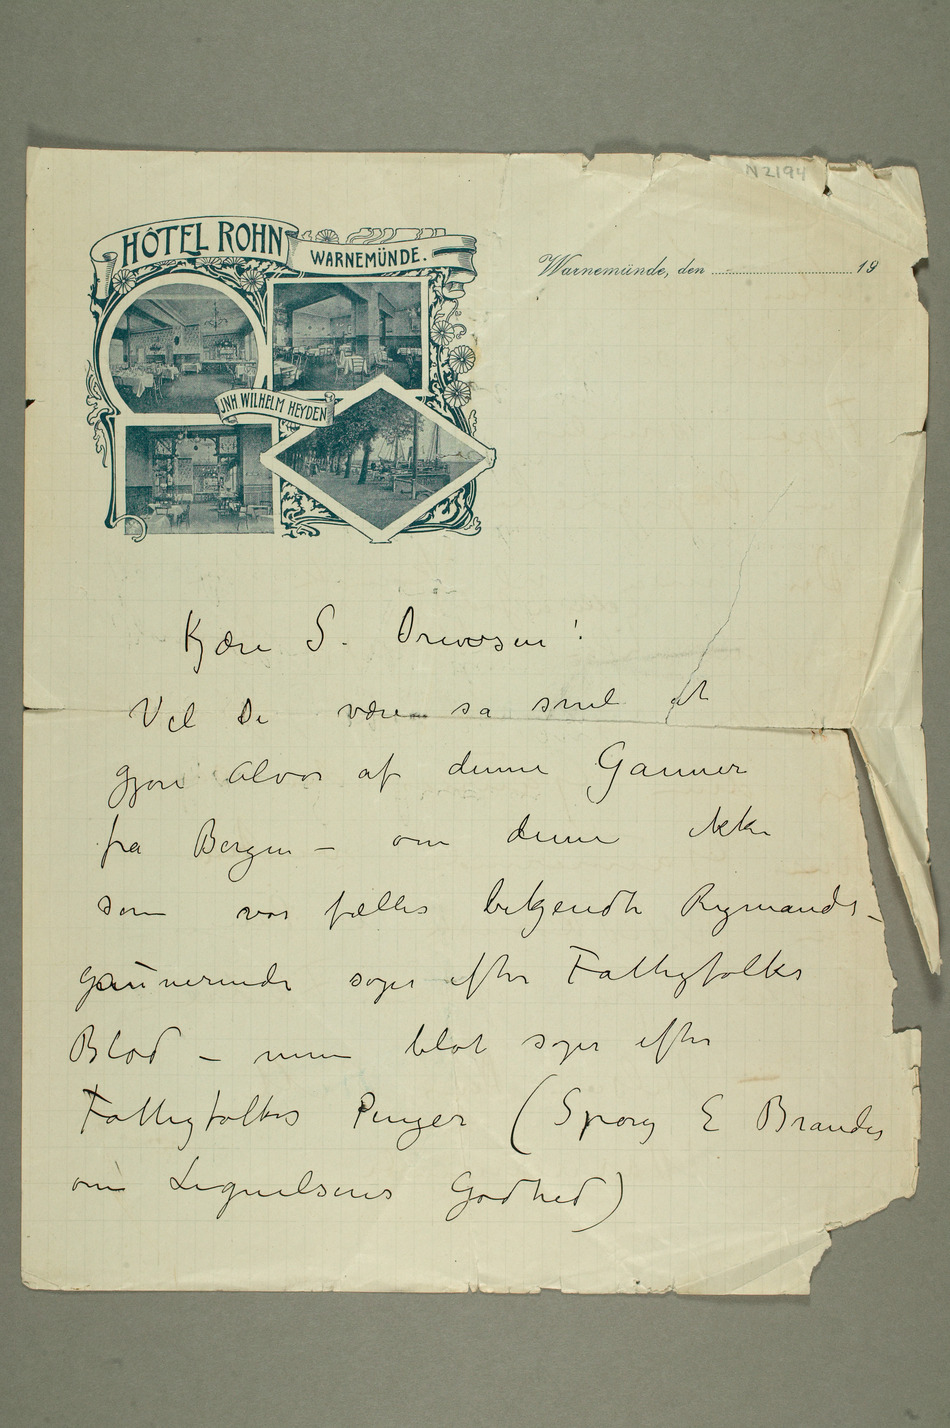 N 2194
HÔTEL ROHN
WARNEMÜNDE.
Warnemünde, den 19
JNH WILHELM HEYDEN
Kjære S.
Vil De være sa snil at
gjøre Alvor af denne Gauner
fra Bergen – om denne ikke
som vor fælles bekjendte Rigmands-
gaunerinde søger efter Fattigfolks
Blod – men blot søger efter
Fattigfolks Penger (Spørg E Brandes
om Lignelsens Godhed)